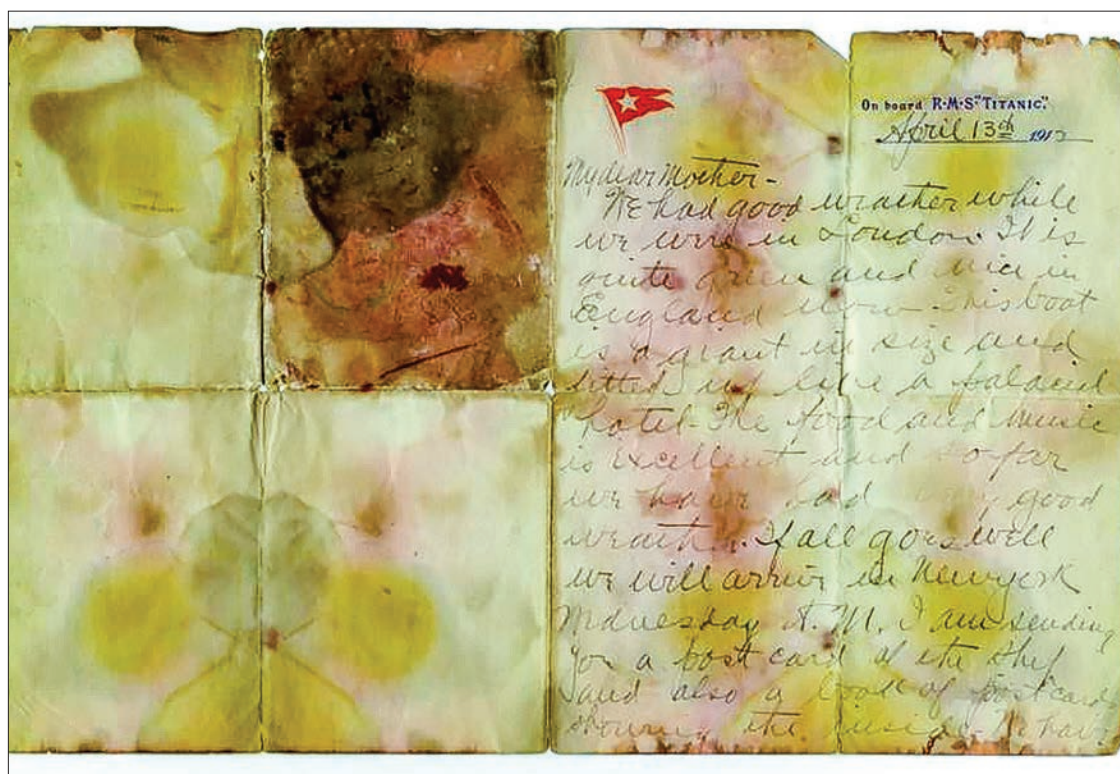 On board R·M·S "TITANIC."
April 13th 1912
My dear Mother-
We had good weather while
we were in London. It is
quite green and nice in
England now. This boat
is a giant in size and
fitted up like a palacial
hotel. The food and music
is excellent and so far
we have had very good
weather. If all goes well
we will arrive in New york
Wednesday A.M. I am sending
you a post card of the ship
and also a book of post cards
showing the inside. We have